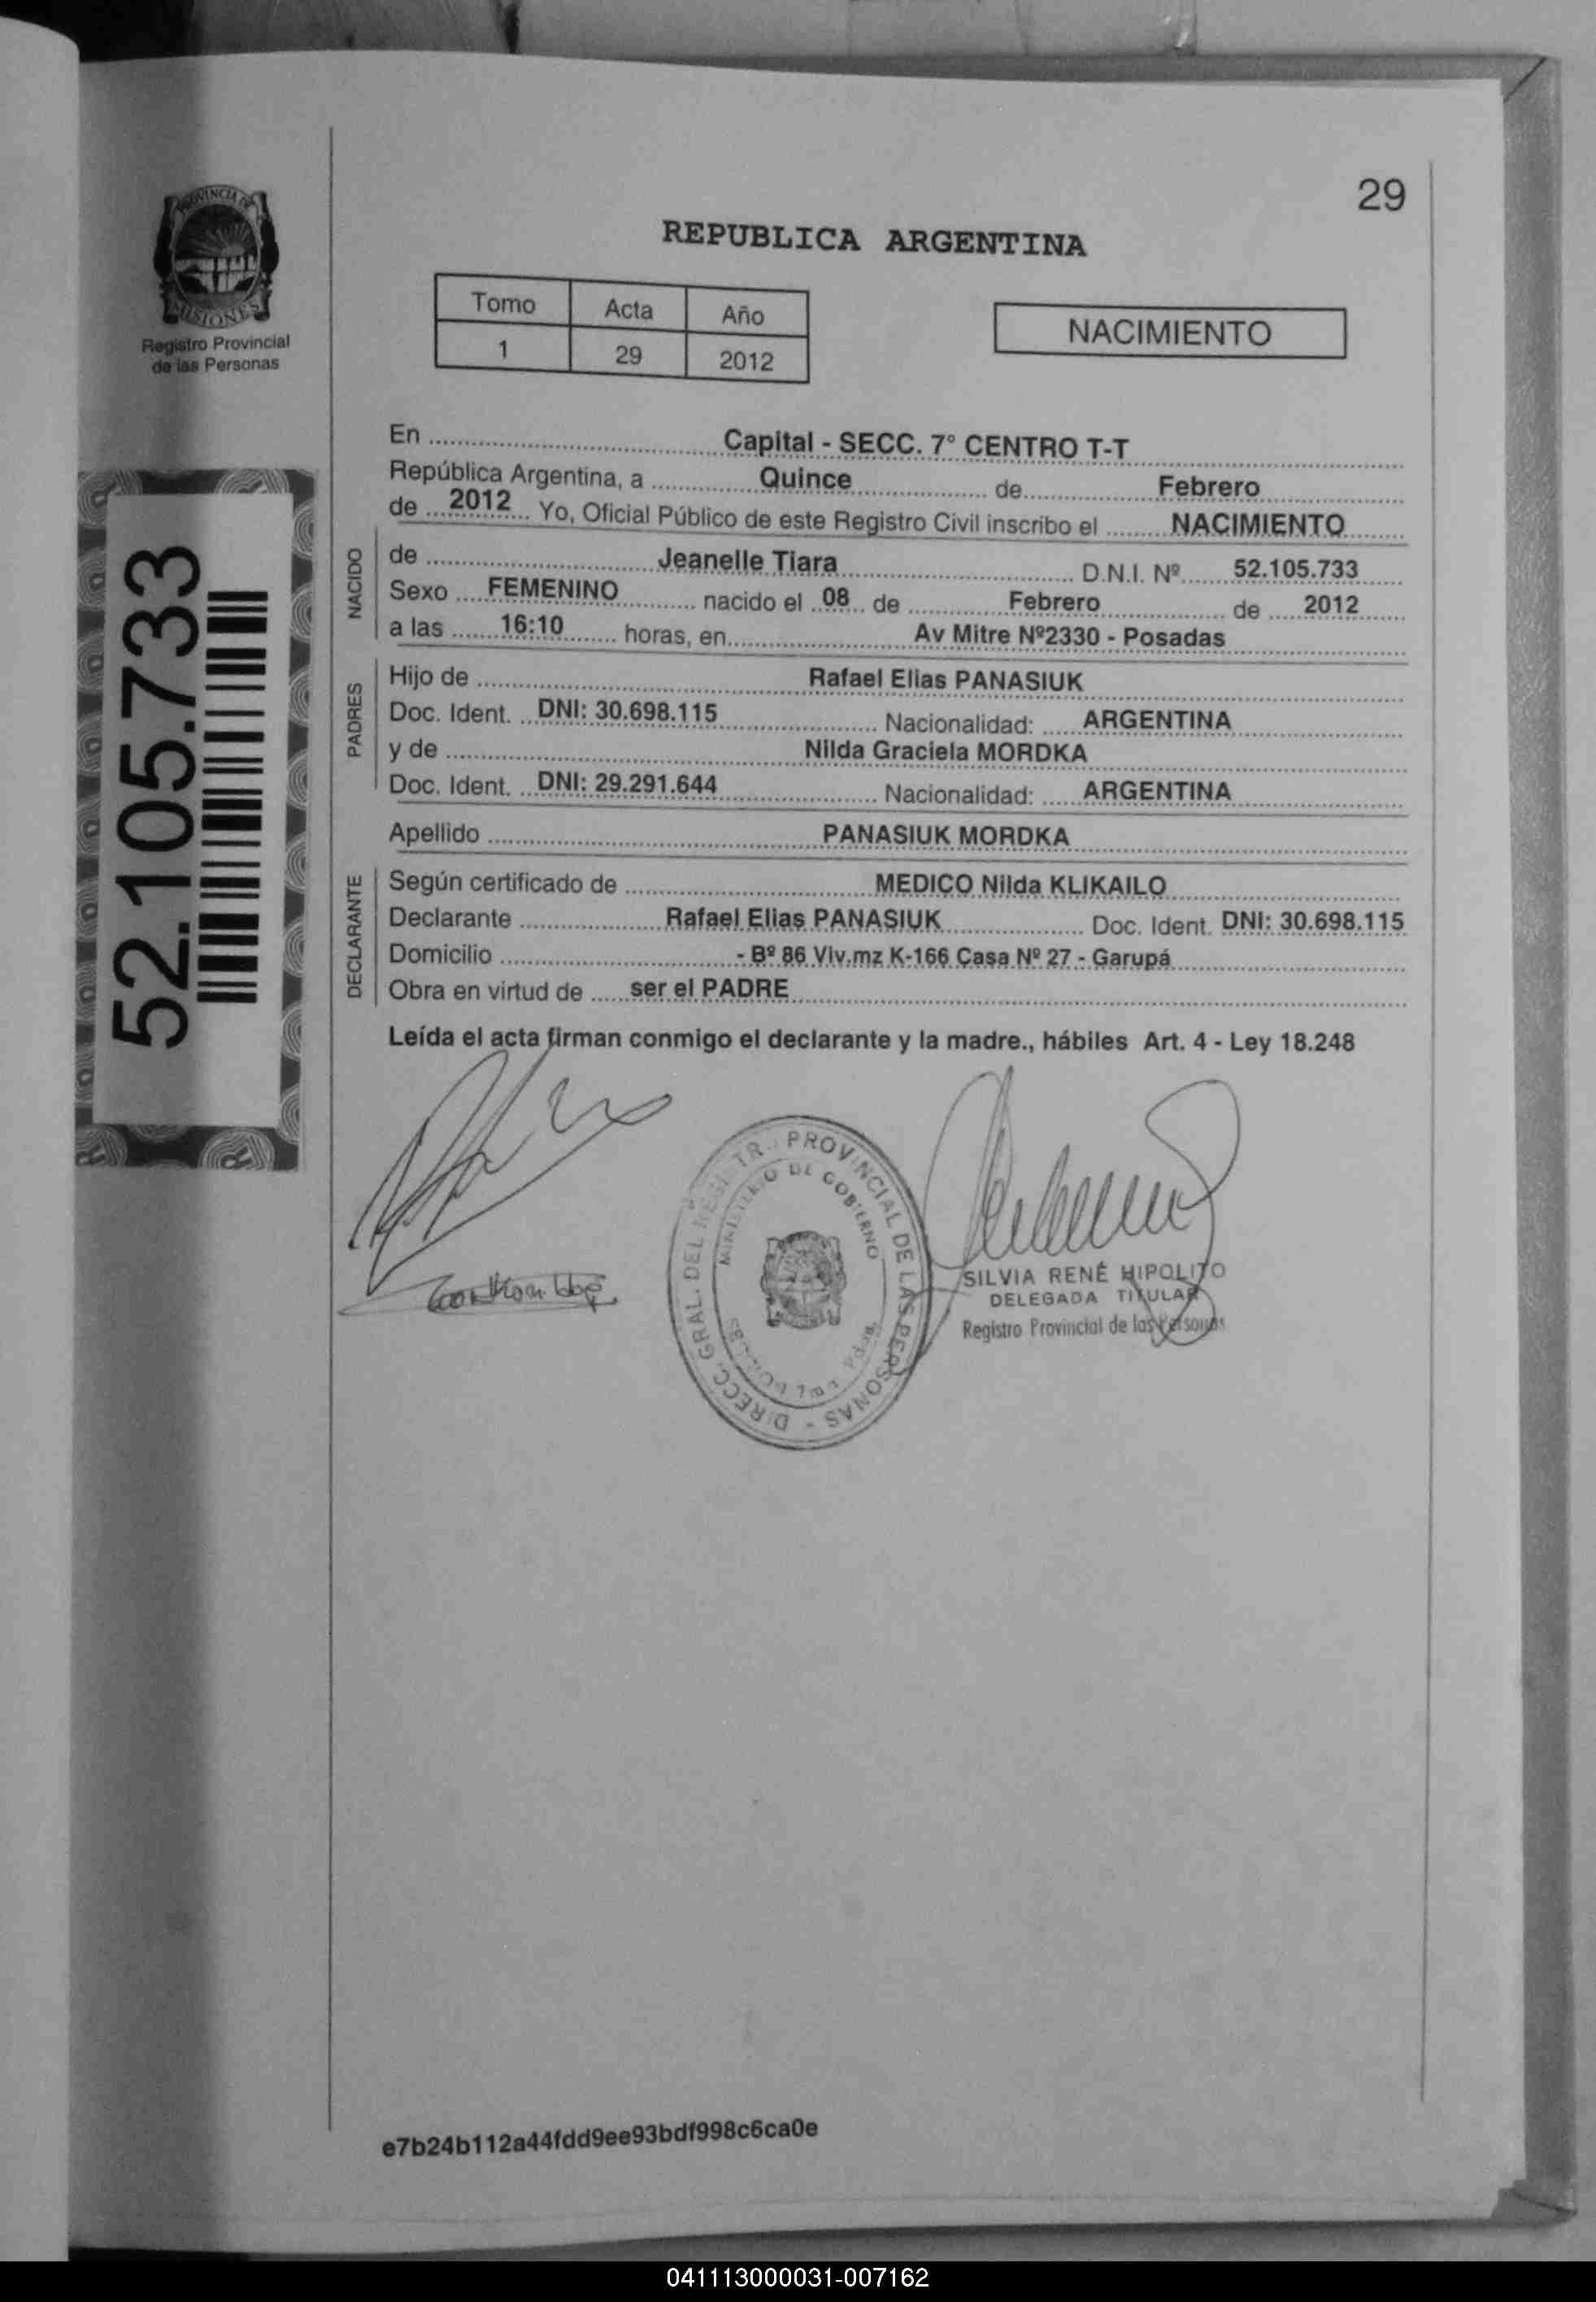 29
PROVINCIA DE
MISIONES
Registro Provincial
de las Personas
REPUBLICA ARGENTINA
Tomo Acta Año
1 29 2012
NACIMIENTO
52.105.733
En Capital - SECC. 7° CENTRO T-T
República Argentina, a Quince de Febrero
de 2012 Yo, Oficial Público de este Registro Civil inscribo el NACIMIENTO
NACIDO
de Jeanelle Tiara D.N.I. Nº 52.105.733
Sexo FEMENINO nacido el 08 de Febrero de 2012
a las 16:10 horas, en Av Mitre Nº2330 - Posadas
PADRES
Hijo de Rafael Elias PANASIUK
Doc. Ident. DNI: 30.698.115 Nacionalidad: ARGENTINA
y de Nilda Graciela MORDKA
Doc. Ident. DNI: 29.291.644 Nacionalidad: ARGENTINA
Apellido PANASIUK MORDKA
DECLARANTE
Según certificado de MEDICO Nilda KLIKAILO
Declarante Rafael Elias PANASIUK Doc. Ident. DNI: 30.698.115
Domicilio - Bº 86 Viv.mz K-166 Casa Nº 27 - Garupá
Obra en virtud de ser el PADRE
Leída el acta firman conmigo el declarante y la madre., hábiles Art. 4 - Ley 18.248
DIRECC. GRAL. DEL REGISTR. PROVINCIAL DE LAS PERSONAS -
MINISTERIO DE GOBIERNO
SILVIA RENÉ HIPOLITO
DELEGADA TITULAR
Registro Provincial de las Personas
e7b24b112a44fdd9ee93bdf998c6ca0e
041113000031-007162